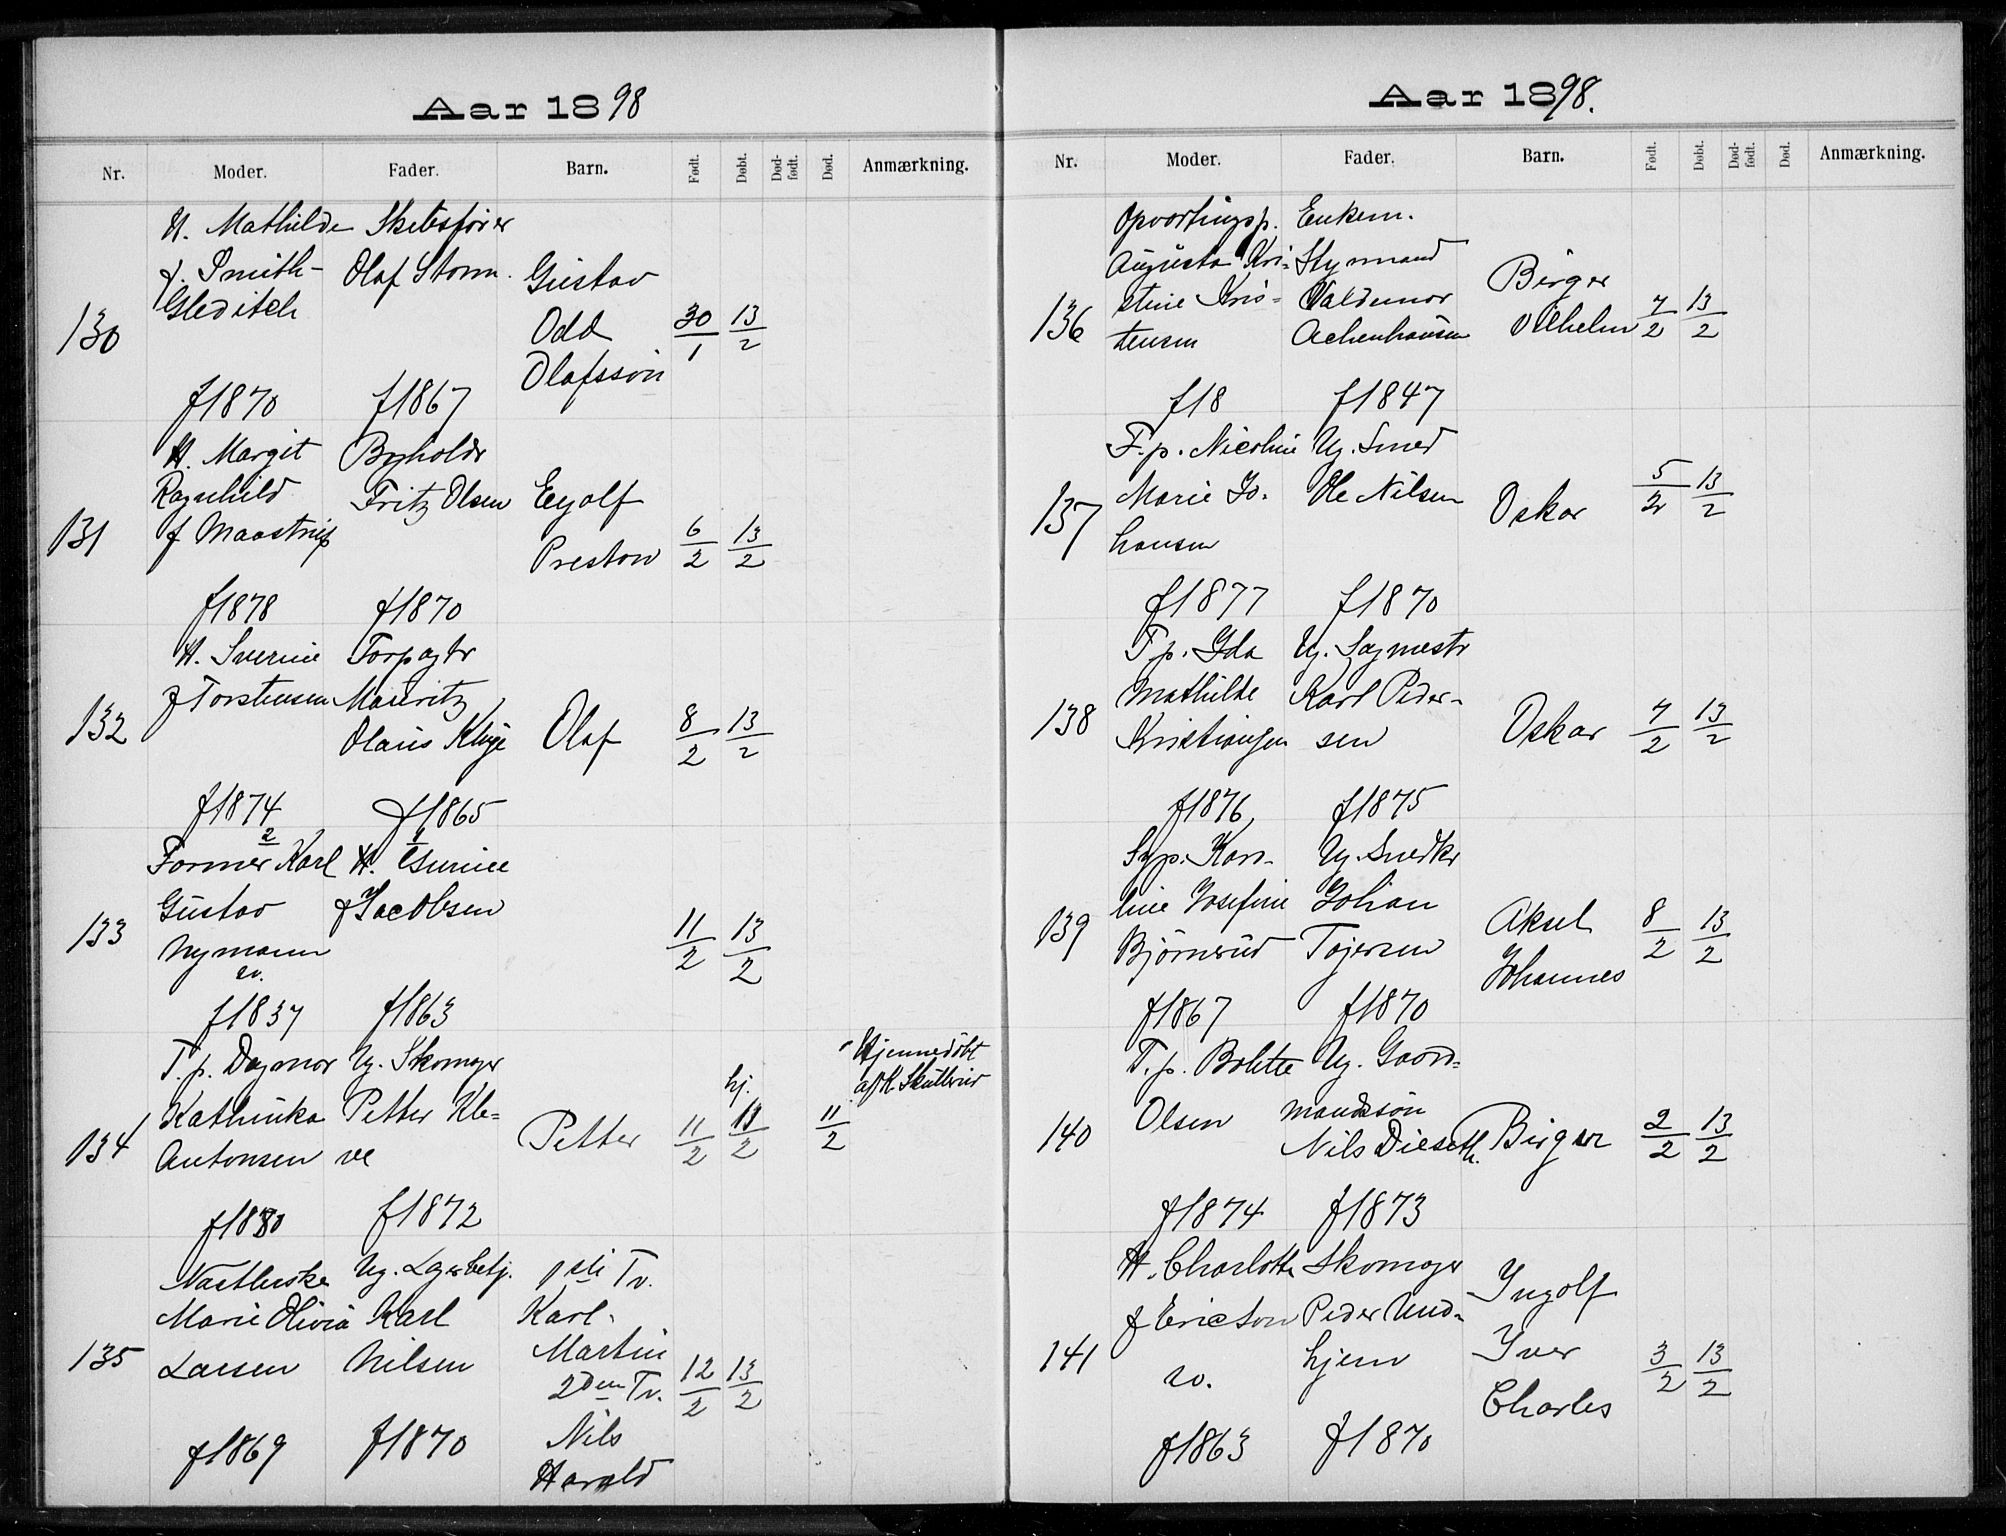 Aar 1898
Nr. Moder. Fader. Barn. Født. Døbt. Dødfødt. Død. Anmærkning.
130
H. Mathilde
f. Smith-
Gleditch
f 1870
Skibsfører
Olaf Storm.
f 1867
Gustav
Odd
Olafssøn
30/1 13/2
131
H. Margit
Ragnhild
f Maastrup
f 1878
Fritz Olsen
f 1870
Eyolf
Preston
6/2 13/2
132
H. Severine
f Torstensen
f 1874
Forpagtr
Mauritz
Olaus
f 1865
Olaf
8/2 13/2
133
2
Former Karl
Gustav
Nymann
sv.
f 1837
1
H.
f Jacobsen
f 1863
11/2 13/2
134
T.p. Dagmar
Kathinka
Antonsen
f 1880
Ug. Skomager
Petter Kle-
ve
f 1872
Petter
11/2
hj.
11/2
11/2
Hjemmedøbt
af K. Skullerud
135
Marie Olivia
Larsen
f 1869
Ug. Lagerbetj.
Karl
Nilsen
f 1870
1ste Tv.
Karl
Martin
2den Tv.
Nils
Harald
12/2 13/2
Aar 1898.
Nr. Moder. Fader. Barn. Født. Døbt. Dødfødt. Død. Anmærkning.
136
Opvartingsp.
Augusta Kri-
stine Kris-
tensen
f 18
Enkem.
Styrmand
Valdemar
Achenhausen
f 1847
Birger
Vilhelm
7/2 13/2
137
F.p. Nicoline
Marie Jo-
hansen
f 1877
Ug. Smed
Ole Nilsen
f 1870
Oskar
5/2 13/2
138
T.p. Ida
Mathilde
Kristiansen
f 1876
Ug. Sagmestr
Karl Peder-
sen
f 1875
Oskar
7/2 13/2
139
Syp. Karo-
line Josefine
Bjørnerud
f 1867
Ug. Snedkr
Johan
Tajersen
f 1870
Aksel
Johannes
8/2 13/2
140
T.p. Bolette
Olsen
f 1874
Ug. Gaard-
mandssøn
Nils Dieseth.
f 1873
Birger
2/2 13/2
141
H. Charlotte
f Ericson
sv.
f 1863
Skomager
Peder Und-
hjem
f 1870
Ingolf
Iver
Charles
3/2 13/2